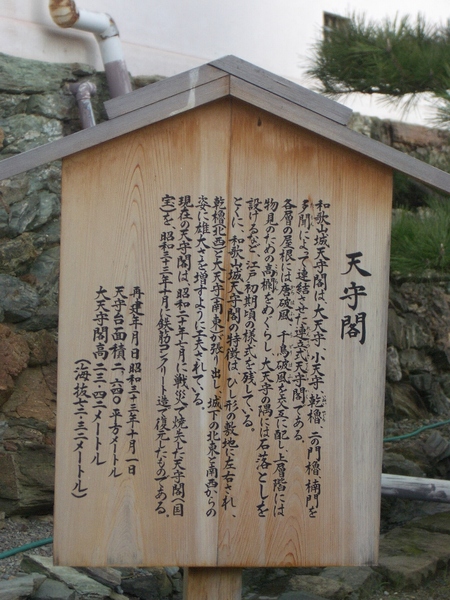 天守閣
和歌山城天守閣は、大天守、小天守、乾櫓、二の門櫓、楠門を
多聞によって連結させた連立式天守閣である。
各層の屋根には唐破風、千鳥破風を交互に配し、上層階には
物見のための高欄をめぐらし、大天守の隅には石落としを
設けるなど、江戸初期頃の様式を残している。
とくに、和歌山城天守閣の特徴は、ひし形の敷地に左右され、
乾櫓(北西)と大天守(南東)が張り出し、城下の北東と南西からの
姿に雄大さを増すように工夫されている。
現在の天守閣は、昭和二十年七月に戦災で焼失した天守閣(国
宝)を、昭和三十三年十月に鉄筋コンクリート造で復元したものである。
再建年月日 昭和三十三年十月一日
天守台面積 二、六四〇平方メートル
大天守閣高 二三・四二メートル
(海抜七二・三二メートル)